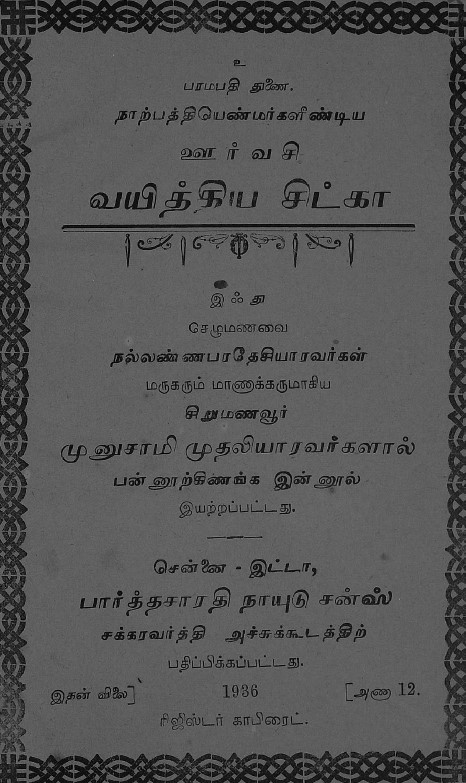 உ
பரமபதி துணை.
நாற்பத்தியெண்மர்களீண்டிய
ஊர்வசி
வயித்திய சிட்கா
இஃது
சேழமணவை
நல்லண்ணபரதேசியாரவர்கள்
மருகரும் மாணாக்கருமாகிய
சிறுமணவூர்
முனுசாமி முதலியாரவர்களால்
பன்னூற்கிணங்க இன்னூல்
இயற்றப்பட்டது.
சென்னை - இட்டா,
பார்த்தசாரதி நாயுடு சன்ஸ்
சக்கரவர்த்தி அச்சுக்கூடத்திற்
பதிப்பிக்கப்பட்டது.
இதன் விலை] 1936 [அணா 12.
ரிஜிஸ்டர் காபிரைட்.